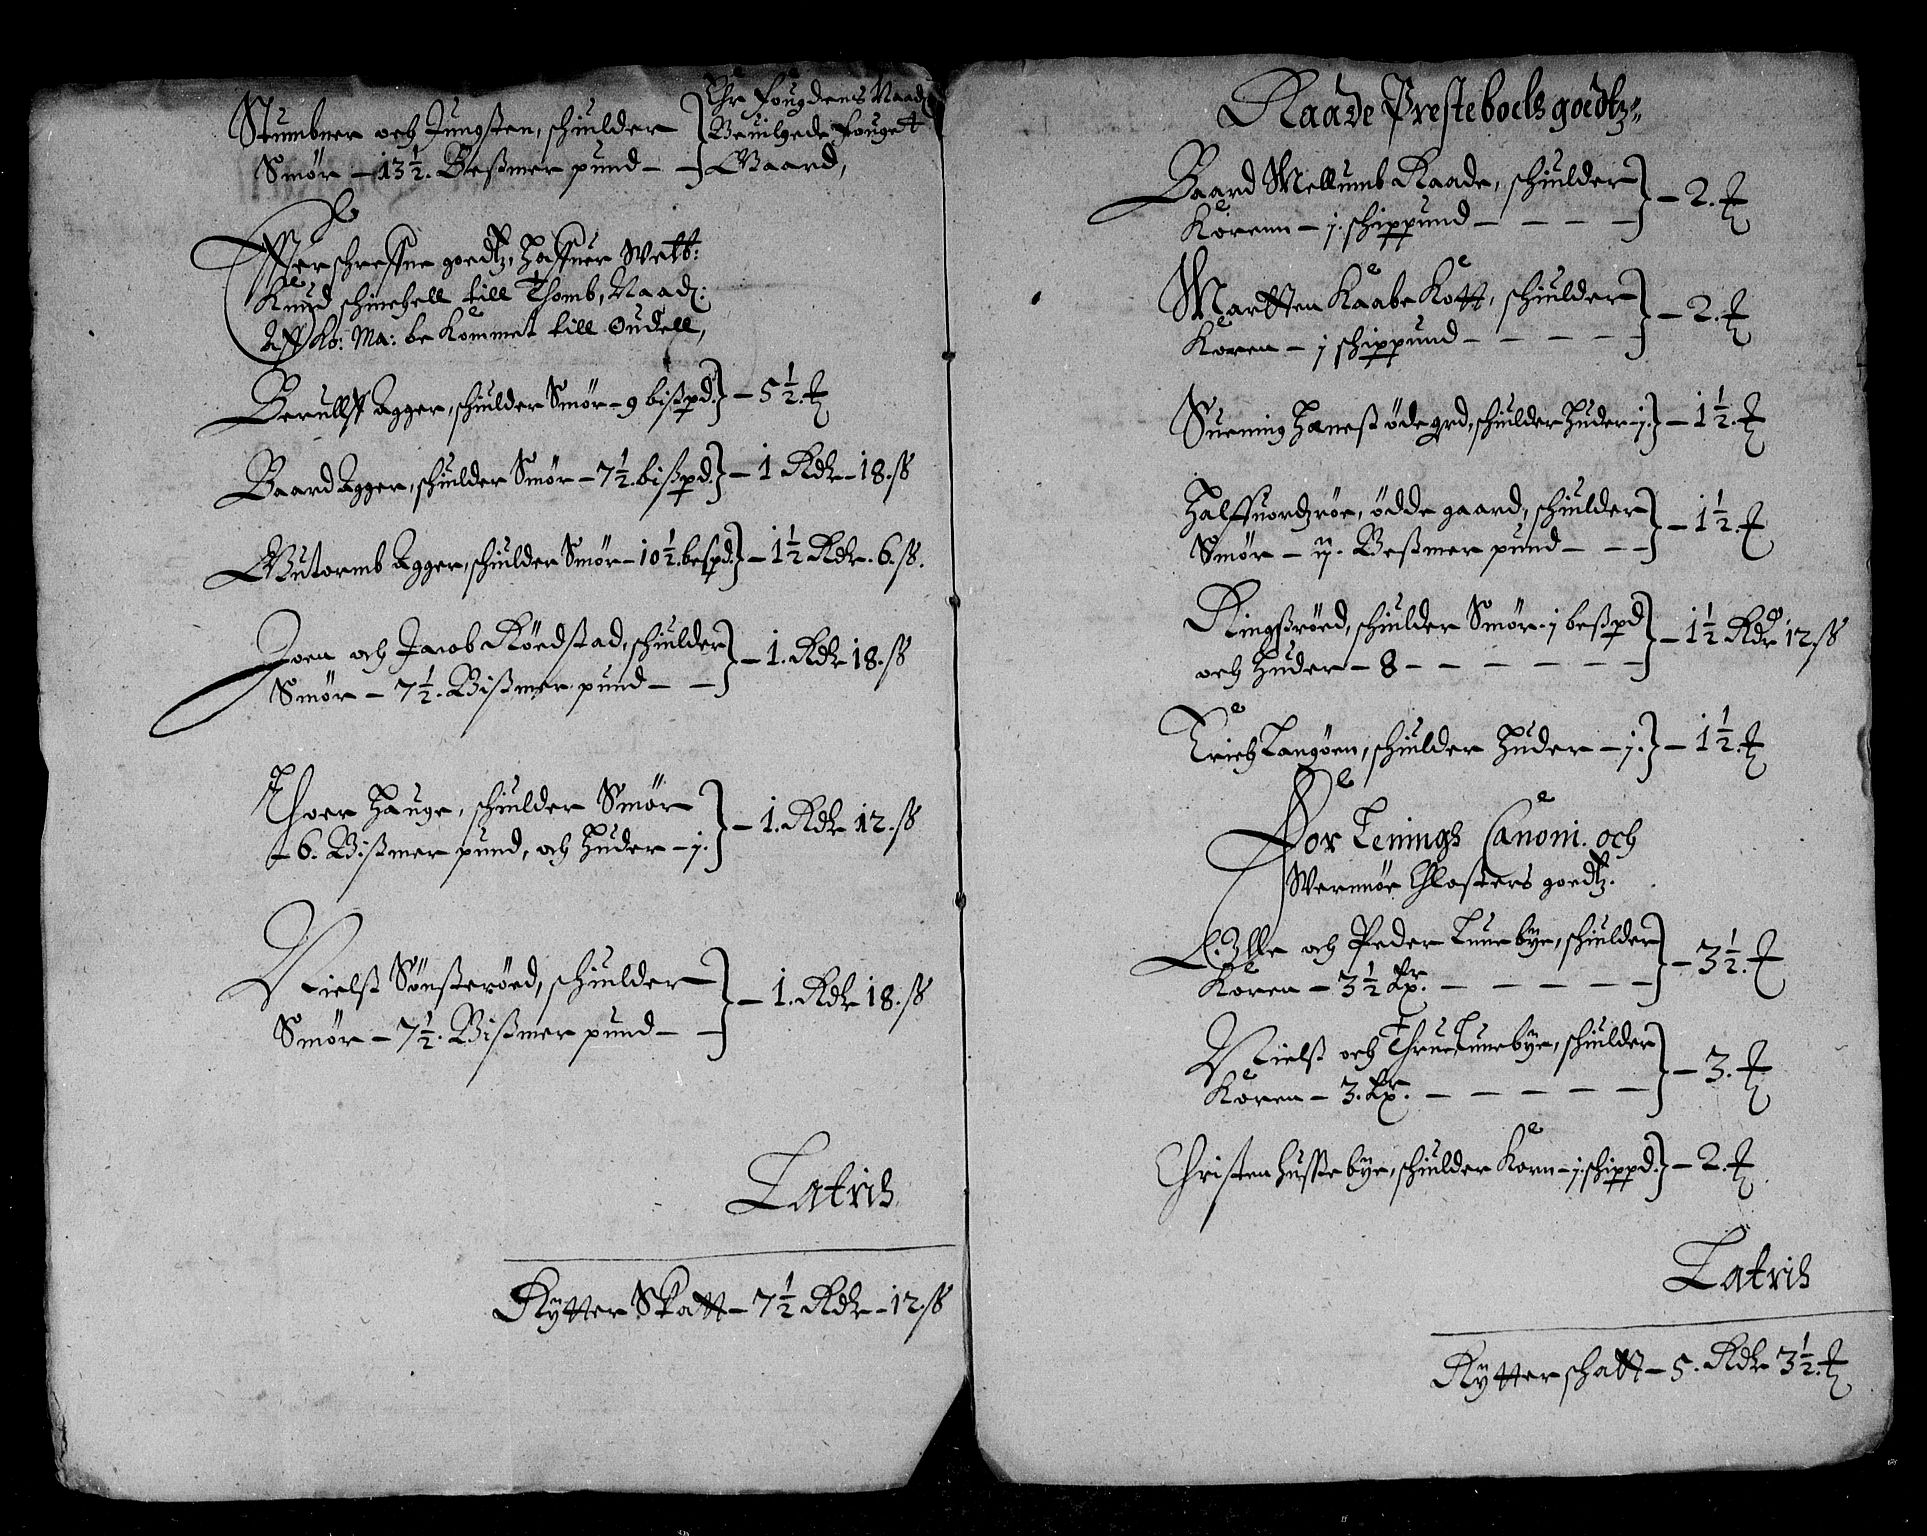 Stumbner och Jungsten, schiulder
Smör – 13½. Beszmer pund – –
Ehr fougdens Naad:
Beuilgede fouget
Gaard,
Effterschreffne goedtz, Haffuer Welb:
Knud schinchell till Thomb, Naad:
Aff Ko: Ma: be Kommet till Oudell,
Berulff Agger, schiulder Smör – 9 biszpd. – 5½. ℔
Baard Agger, schiulder Smör – 7½. biszpd. – 1 Rdlr – 18. sz
Gutormb Agger, schiulder Smör – 10½. bespd. – 1½ Rdlr. 6. sz.
Joen och Jacob Röedstad, schiulder
Smör – 7½. Biszmer pund – – – 1. Rdlr 18. sz
Thoer Hauge, schiulder Smör
– 6. Biszmer pund, och Huder – j. – 1. Rdlr 12. sz
Nielsz Sönsteröed, schiulder
Smör – 7½. Biszmer pund – – – 1. Rdlr 18. sz
Latris
Rytter Skatt – 7½ Rdlr – 12. sz
Raade Presteboels goedtz
Baard Mellumb Raade, schiulder
Korenn – j. schippund – – – – – 2. ℔
Martten Kaabe Kott, schiulder
Koren – j schippund – – – – – 2. ℔
Suening Hanest öde grd, schiulder Huder – j. – 1½. ℔
Halffuordzröe, ödde gaard, schiulder
Smör – ij. Beszmer pund – – – – 1½. ℔
Ringszröed, schiulder Smör – j beszpd
och Huder – 8 – – – – – – – 1½ Rdlr 12. sz
Erich Langöen, schiulder Huder – j. – 1½. ℔
For Lenings Canoni. och
Wernnöe Closters goedtz.
Olle och Peder Lunebye, schiulder
Koren – 3½ ℔. – – – – – – 3½. ℔
Nielsz och Thrue Lunebye, schiulder
Koren – 3. ℔. – – – – – – 3. ℔
Christen Hussebye, schiulder Korn – j. schippd. – 2. ℔
Latris
Rytter schatt – 5. Rdlr 3½. ℔